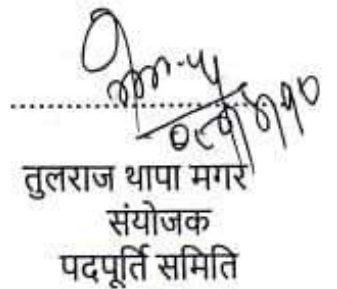 तुलराज थापा मगर
संयोजक
पदपूर्ति समिति